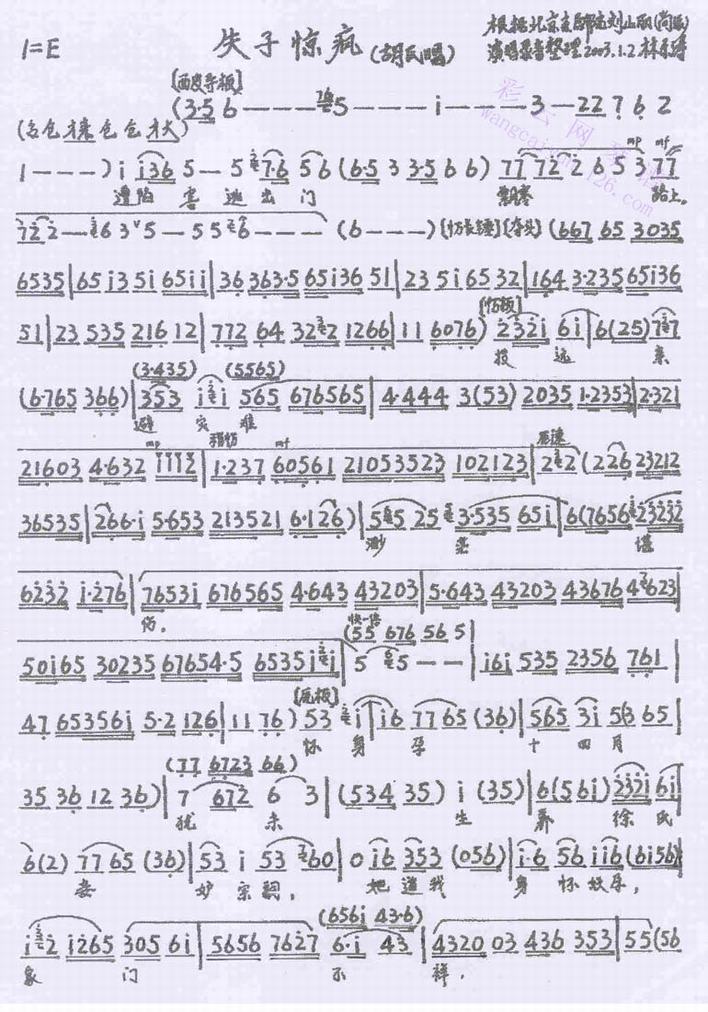 1=E 失子惊疯 (胡氏唱) 根据北京京剧院刘山丽(尚派)
演唱录音整理 2003.1.2
彩云网
[西皮导板]
(3·5 6 - - - - 5 - - - - i - - - - 3 - 22 7 6 2
1 - - - ) i i36 5 - 5 7·6 56 (6·5 3 3·5 6 6) 77 72 2 6 5 3 77
遭陷害逃出门 路上。
722 - 6 3 5 - 5 5 6 - - - (6 - - -) (667 65 3035
6535 | 65 i3 5i 65ii | 36 363·5 65i36 51 | 23 5i65 32 | 164 3·235 65i36
51 | 23 535 216 12 | 772 64 32 2 1266 | 11 6076) 232i 6i | 6(25) 7 7
投远亲
(3·435) (5565)
(6·765 366) | 353 i i 565 676565 | 4·444 3(53) 2035 1·2353 | 2·321
避灾难
mp mf 原速
21603 4·632 1112 | 1·237 60561 21053523 102123 | 2 2 (226 23212
36535 | 266·i 5·653 213521 6·126) | 5 5 25 3·535 65i | 6(7656 23232
渺茫
6232 i·276) | 7653i 676565 4·643 43203 | 5·643 43203 43676 4 623 |
伤。
快一倍
(55 676 56 5
50i65 30235 67654·5 6535i i | 5 5 - - | i6i 535 2356 761 |
[原板]
47 653561 5·2 126 | 11 76) 53 i | i6 77 65 (36) | 565 3i 56 65 |
怀身孕十四月
(77 6723 66)
35 36 12 36) | 7 672 6 3 | (534 35) i (35) | 6(56i) 232i 6i |
犹未生养徐氏
6(2) 77 65 (36) | 53 i 53 60 | 0 i6 353 (056) | i·6 56 ii6 (6i56) |
妾妙宗嗣, 她道我身怀妖孕,
(656i 43·6)
i 2 i265 305 6i | 5656 7627 6·i 43 | 4320 03 436 353 | 55(56
家门不祥,